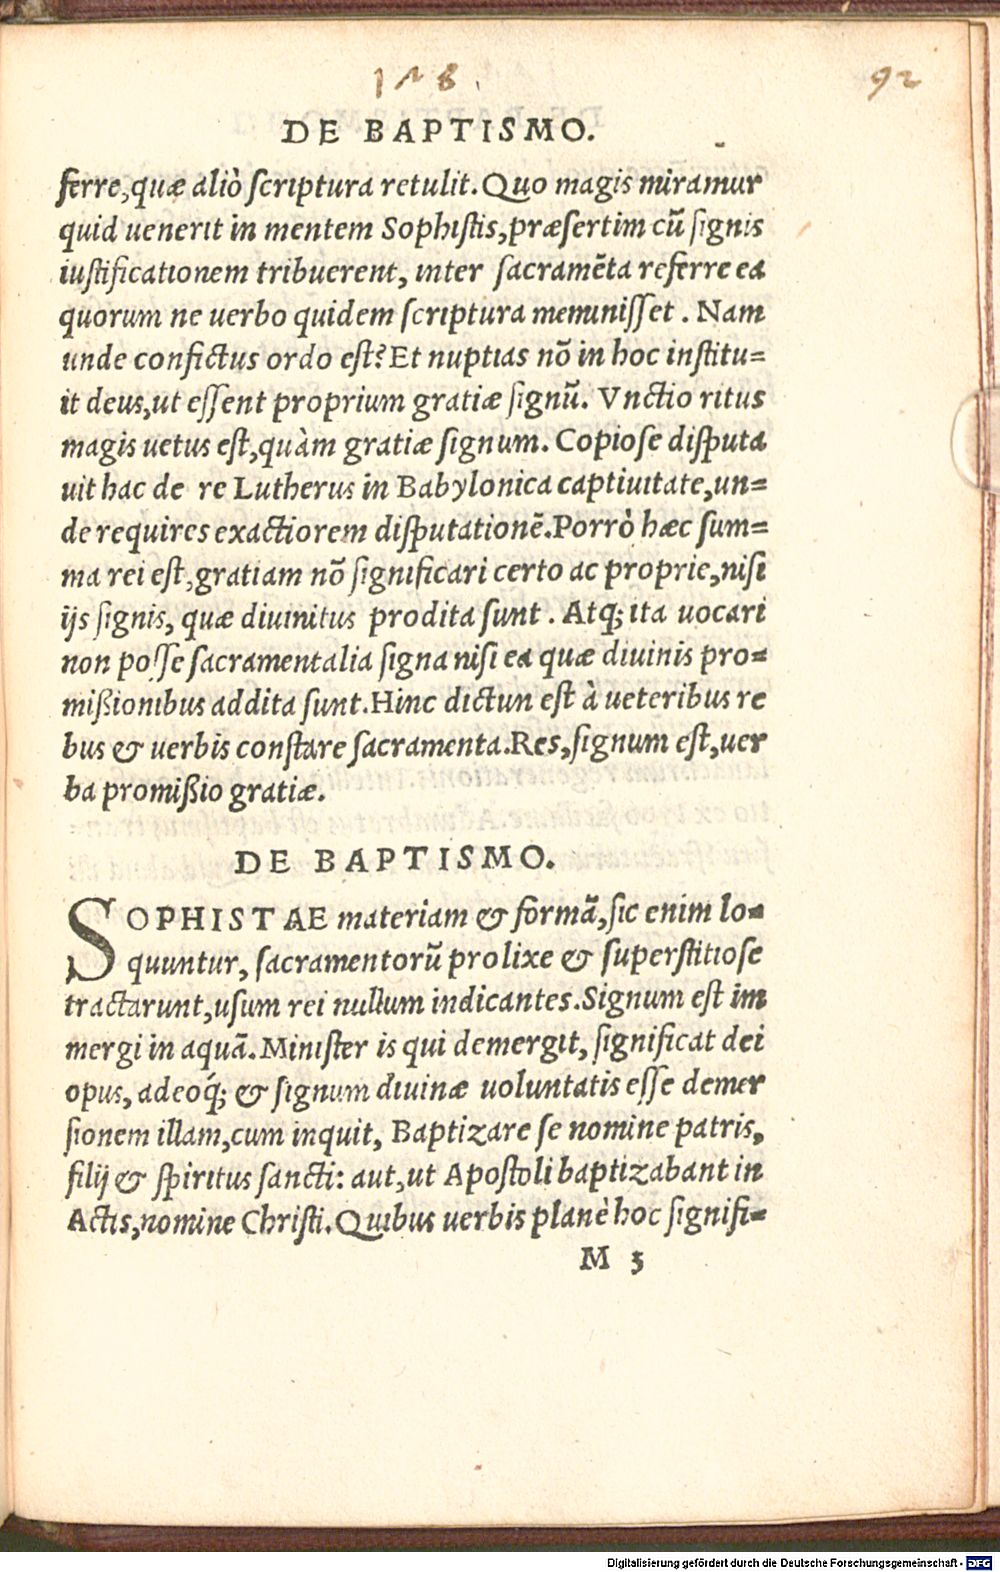 178.
92
DE BAPTISMO.
ferre,quæ aliò scriptura retulit.Quo magis miramur
quid uenerit in mentem Sophistis,præsertim cũ signis
iustificationem tribuerent, inter sacramẽta referre ea
quorum ne uerbo quidem scriptura meminisset . Nam
unde confictus ordo est? Et nuptias nõ in hoc institu=
it deus,ut essent proprium gratiæ signũ. Vnctio ritus
magis uetus est,quàm gratiæ signum. Copiose disputa
uit hac de re Lutherus in Babylonica captiuitate,un=
de requires exactiorem disputationẽ.Porrò hæc sum=
ma rei est,gratiam nõ significari certo ac proprie,nisi
ijs signis, quæ diuinitus prodita sunt . Atq; ita uocari
non posse sacramentalia signa nisi ea quæ diuinis pro=
mißionibus addita sunt.Hinc dictun est à ueteribus re
bus & uerbis constare sacramenta.Res,signum est,uer
ba promißio gratiæ.
DE BAPTISMO.
SOPHISTAE materiam & formã,sic enim lo=
quuntur, sacramentorũ prolixe & superstitiose
tractarunt,usum rei nullum indicantes.Signum est im
mergi in aquã.Minister is qui demergit, significat dei
opus, adeoq́; & signum diuinæ uoluntatis esse demer
sionem illam,cum inquit, Baptizare se nomine patris,
filij & spiritus sancti: aut,ut Apostoli baptizabant in
Actis,nomine Christi.Quibus uerbis planè hoc signifi=
M 3
Digitalisierung gefördert durch die Deutsche Forschungsgemeinschaft - DFG